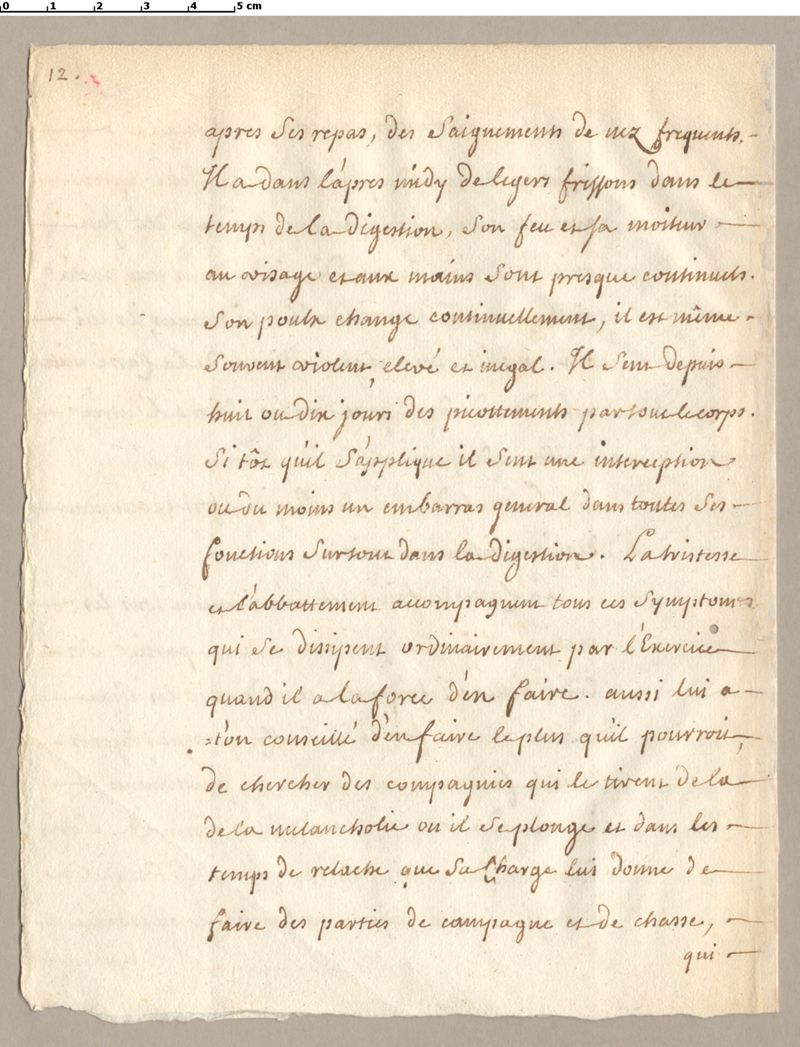 0 1 2 3 4 5 cm
12.
apres ses repas, des saignements de nez frequents.
Il a dans l'apres midy de legers frissons dans le
temps de la digestion, son feu et sa moiteur
au visage et aux mains sont presque continuels.
Son poulx change continuellement, il est même
souvent violent, elevé et inegal. Il sent depuis
huit ou dix jours des picottements partout le corps.
Si tôt qu'il s'applique il sent une interception
ou du moins un embarras general dans toutes ses
fonctions surtout dans la digestion. La tristesse
et l'abbattement accompagnent tous ces symptomes
qui se dissipent ordinairement par l'Exercice
quand il a la force d'en faire. aussi lui a-
=t'on conseillé d'en faire le plus qu'il pourroit,
de chercher des compagnies qui le tirent de la
de la melancholie ou il se plonge et dans les
temps de relache que sa Charge lui donne de
faire des parties de campagne et de chasse,
qui